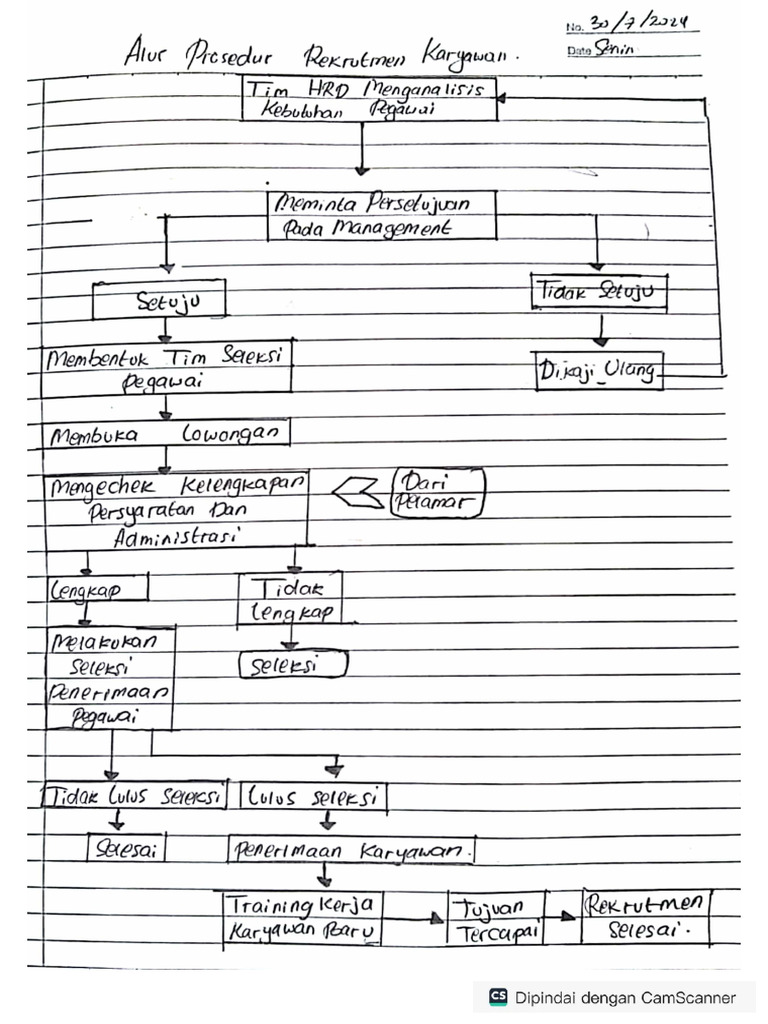 No. 30/7/2024
Date Senin
Alur Prosedur Rekrutmen Karyawan.
Tim HRD Menganalisis
Kebutuhan Pegawai
Meminta Persetujuan
Pada Management
Setuju
Tidak Setuju
Membentuk Tim Seleksi
Pegawai
Dikaji Ulang
Membuka Lowongan
Mengechek Kelengkapan
Persyaratan Dan
Administrasi
Dari
Pelamar
Lengkap
Tidak
Lengkap
Melakukan
Seleksi
Penerimaan
Pegawai
Seleksi
Tidak Lulus Seleksi
Lulus Seleksi
Selesai
Penerimaan Karyawan.
Training Kerja
Karyawan Baru
Tujuan
Tercapai
Rekrutmen
Selesai.
CS Dipindai dengan CamScanner